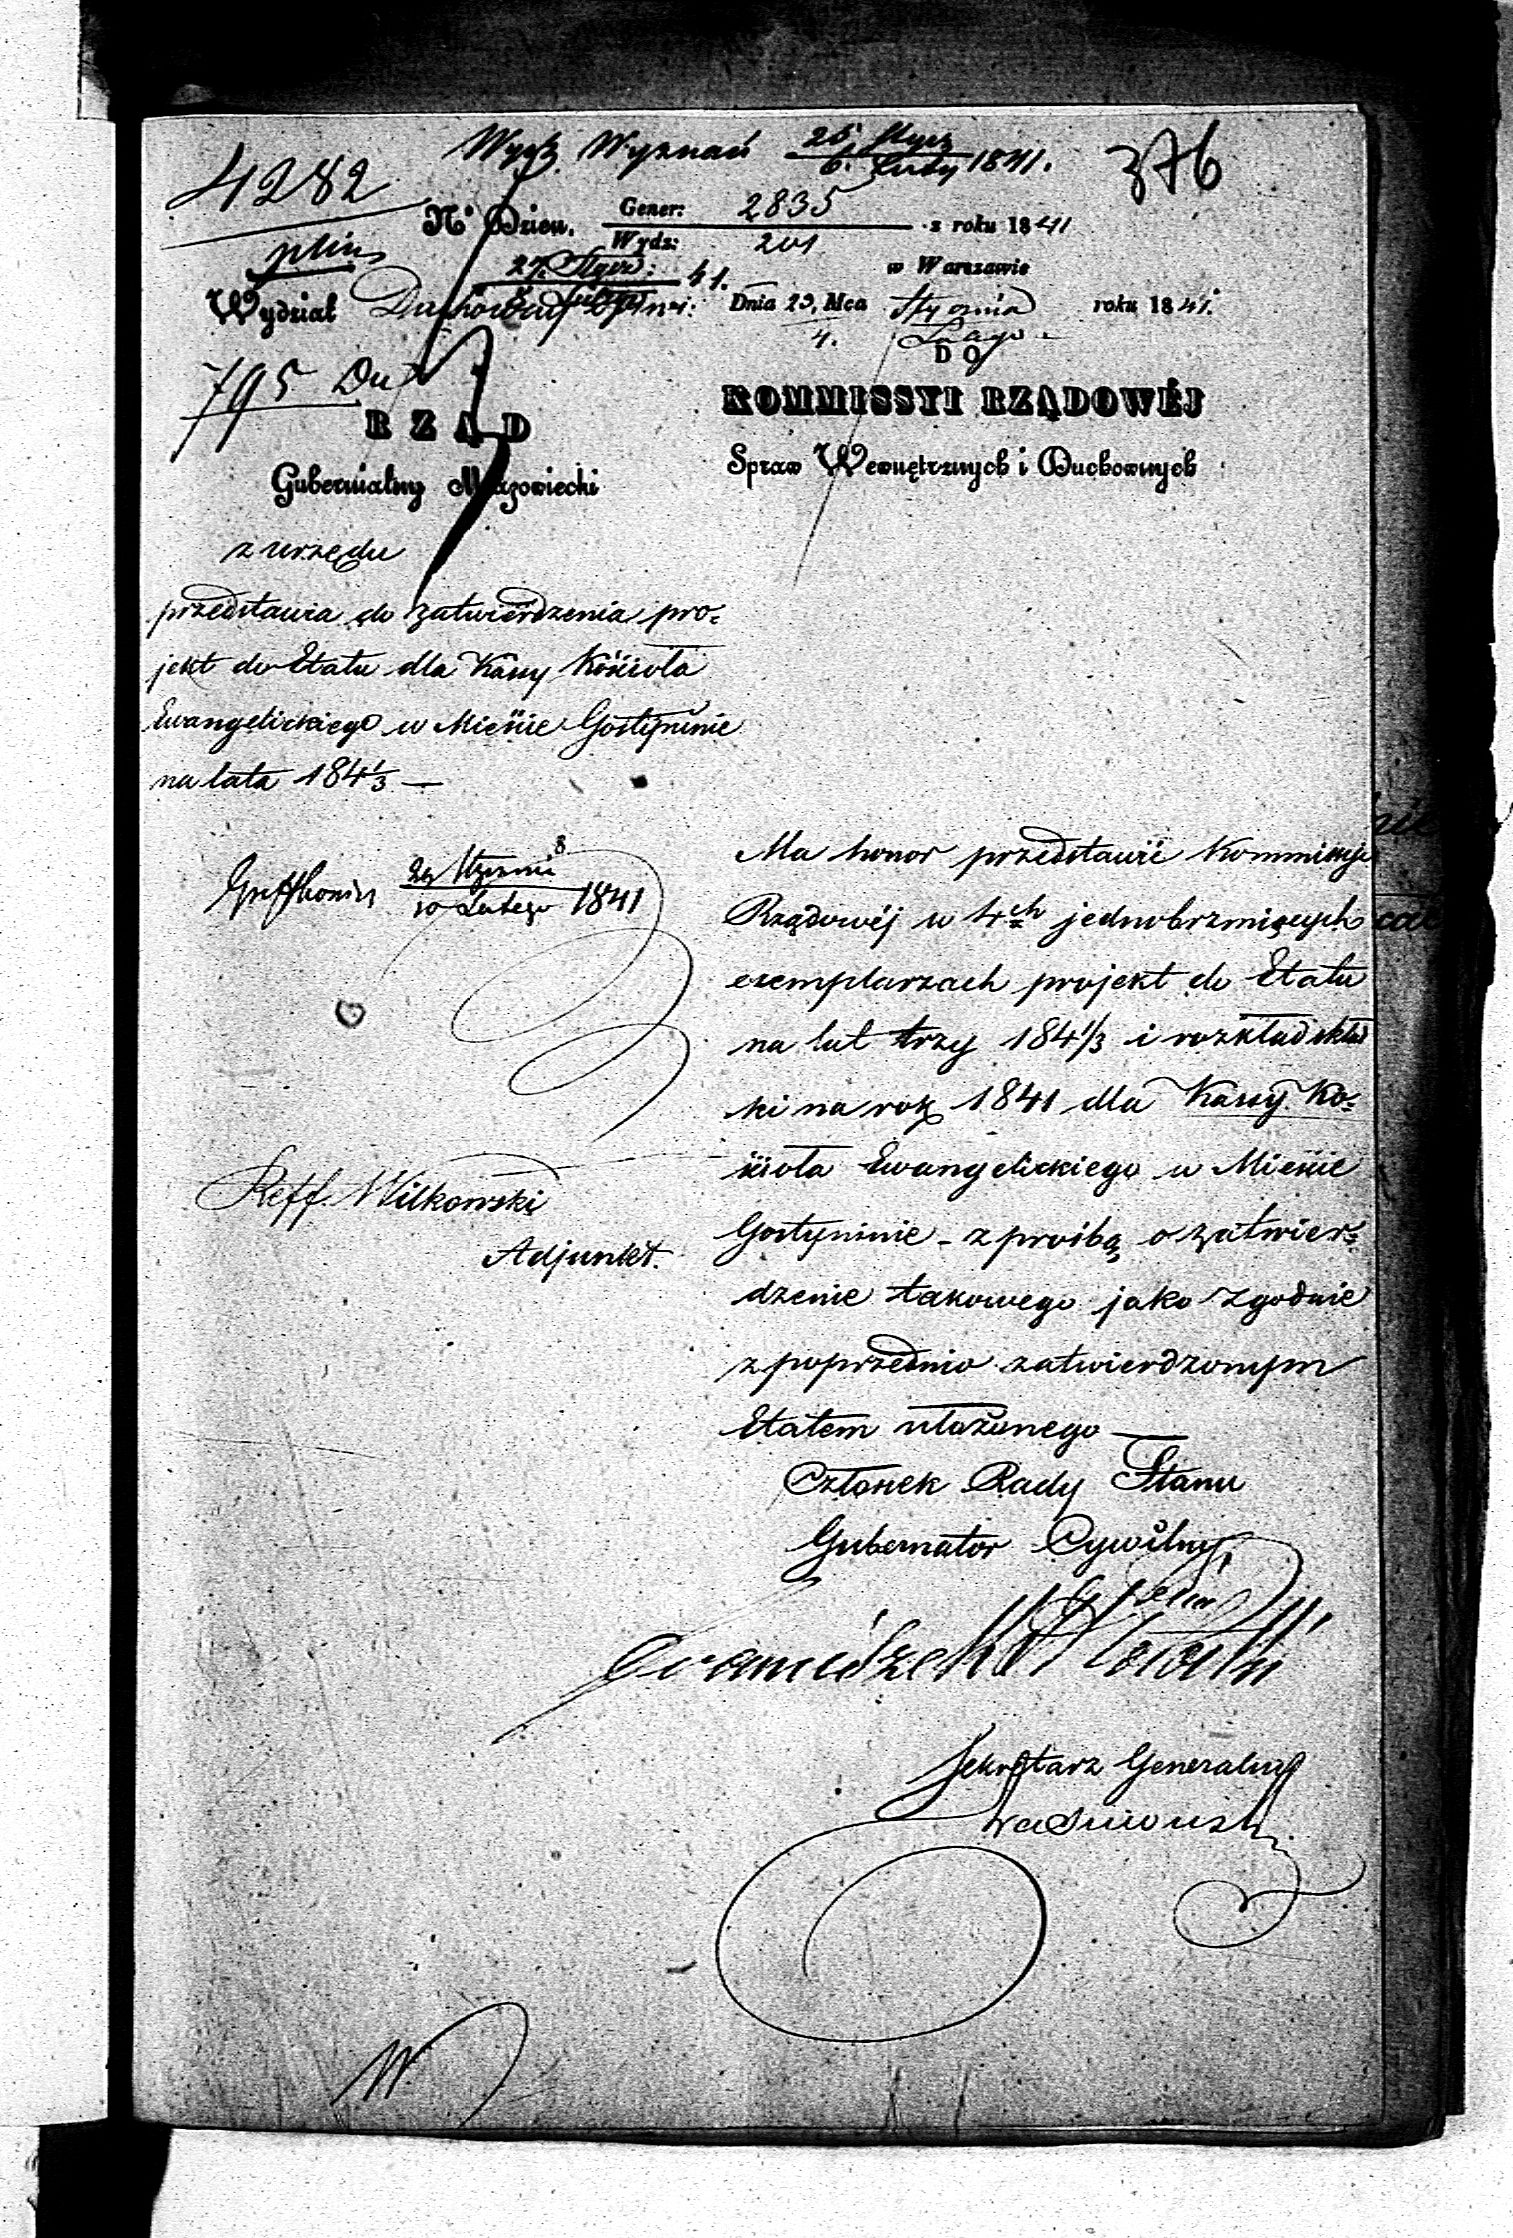 Wyznań 25 Stycz / 6 Lutego 1841.
376
4282
No Dzien. Gener: 2835 / Wydz: 201 z roku 1841
plin
27 Stycz: 41.
w Warszawie
Wydział Duchowny Dnia 23, Mca Stycznia roku 1841.
4. Lutego
DO
795 Du
RZĄD
Gubernialny Mazowiecki
KOMMISSYI RZĄDOWÉJ
Spraw Wewnętrznych i Duchownych
z urzędu
przedstawia do zatwierdzenia pro-
jekt do Etatu dla Kassy Kościoła
Ewangelickiego w Mieście Gostyninie
na lata 184 1/3 —
Stycznia / 10 Lutego 1841
Ma honor przedstawić Kommissyi
Rządowéj w 4ch jednobrzmiących
exemplarzach projekt do Etatu
na lat trzy 184 1/3 i rozkład skład
ki na rok 1841 dla Kassy Ko-
ścioła Ewangelickiego w Mieście
Gostyninie - z prośbą o zatwier-
dzenie takowego jako zgodnie
z poprzednio zatwierdzonym
Etatem ułożonego —
Reff. Wilkowski
Adjunkt.
Członek Rady Stanu
Gubernator Cywilny,
Sekretarz Generalny
W